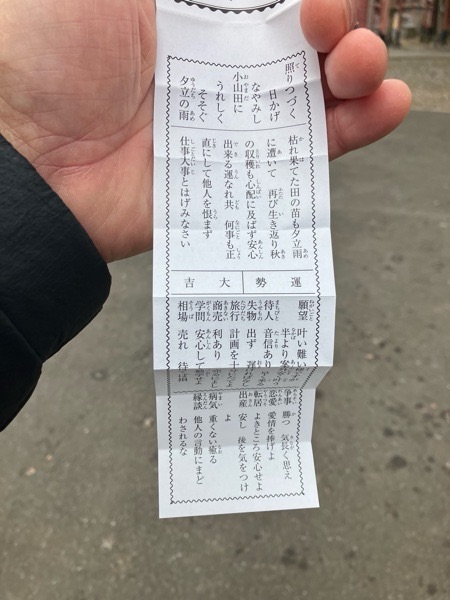 照りつづく
日かげ
なやみし
小山田に
うれしく
そそぐ
夕立の雨
枯れ果てた田の苗も夕立雨
に遭いて 再び生き返り秋
の収穫も心配に及ばず安心
出来る運なれ共 何事も正
直にして他人を恨まず
仕事大事とはげみなさい
運勢 大吉
願望 叶い難い
半より
待人 音信あり
失物 出ず
旅行 計画を
商売 利あり
学問 安心して
相場 売れ 待
争事 勝つ 気長く思え
恋愛 愛情を捧げよ
転居 よきところ安心せよ
出産 安し 後を気をつけ
よ
病気 重くない癒る
縁談 他人の言動にまど
わされるな